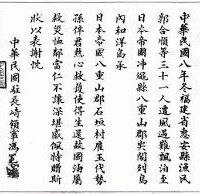 中華民國八年冬福建省惠安縣漁民
郭合順等三十一人遭風遇難飄泊至
日本帝國沖繩縣八重山郡尖閣列島
內和洋島承
日本帝國八重山郡石垣村雇玉代勢
孫伴君熱心救護使得生還故國洵屬
救災恤鄰當仁不讓深堪感佩特贈斯
狀以表謝忱
中華民國駐長崎領事馮冕